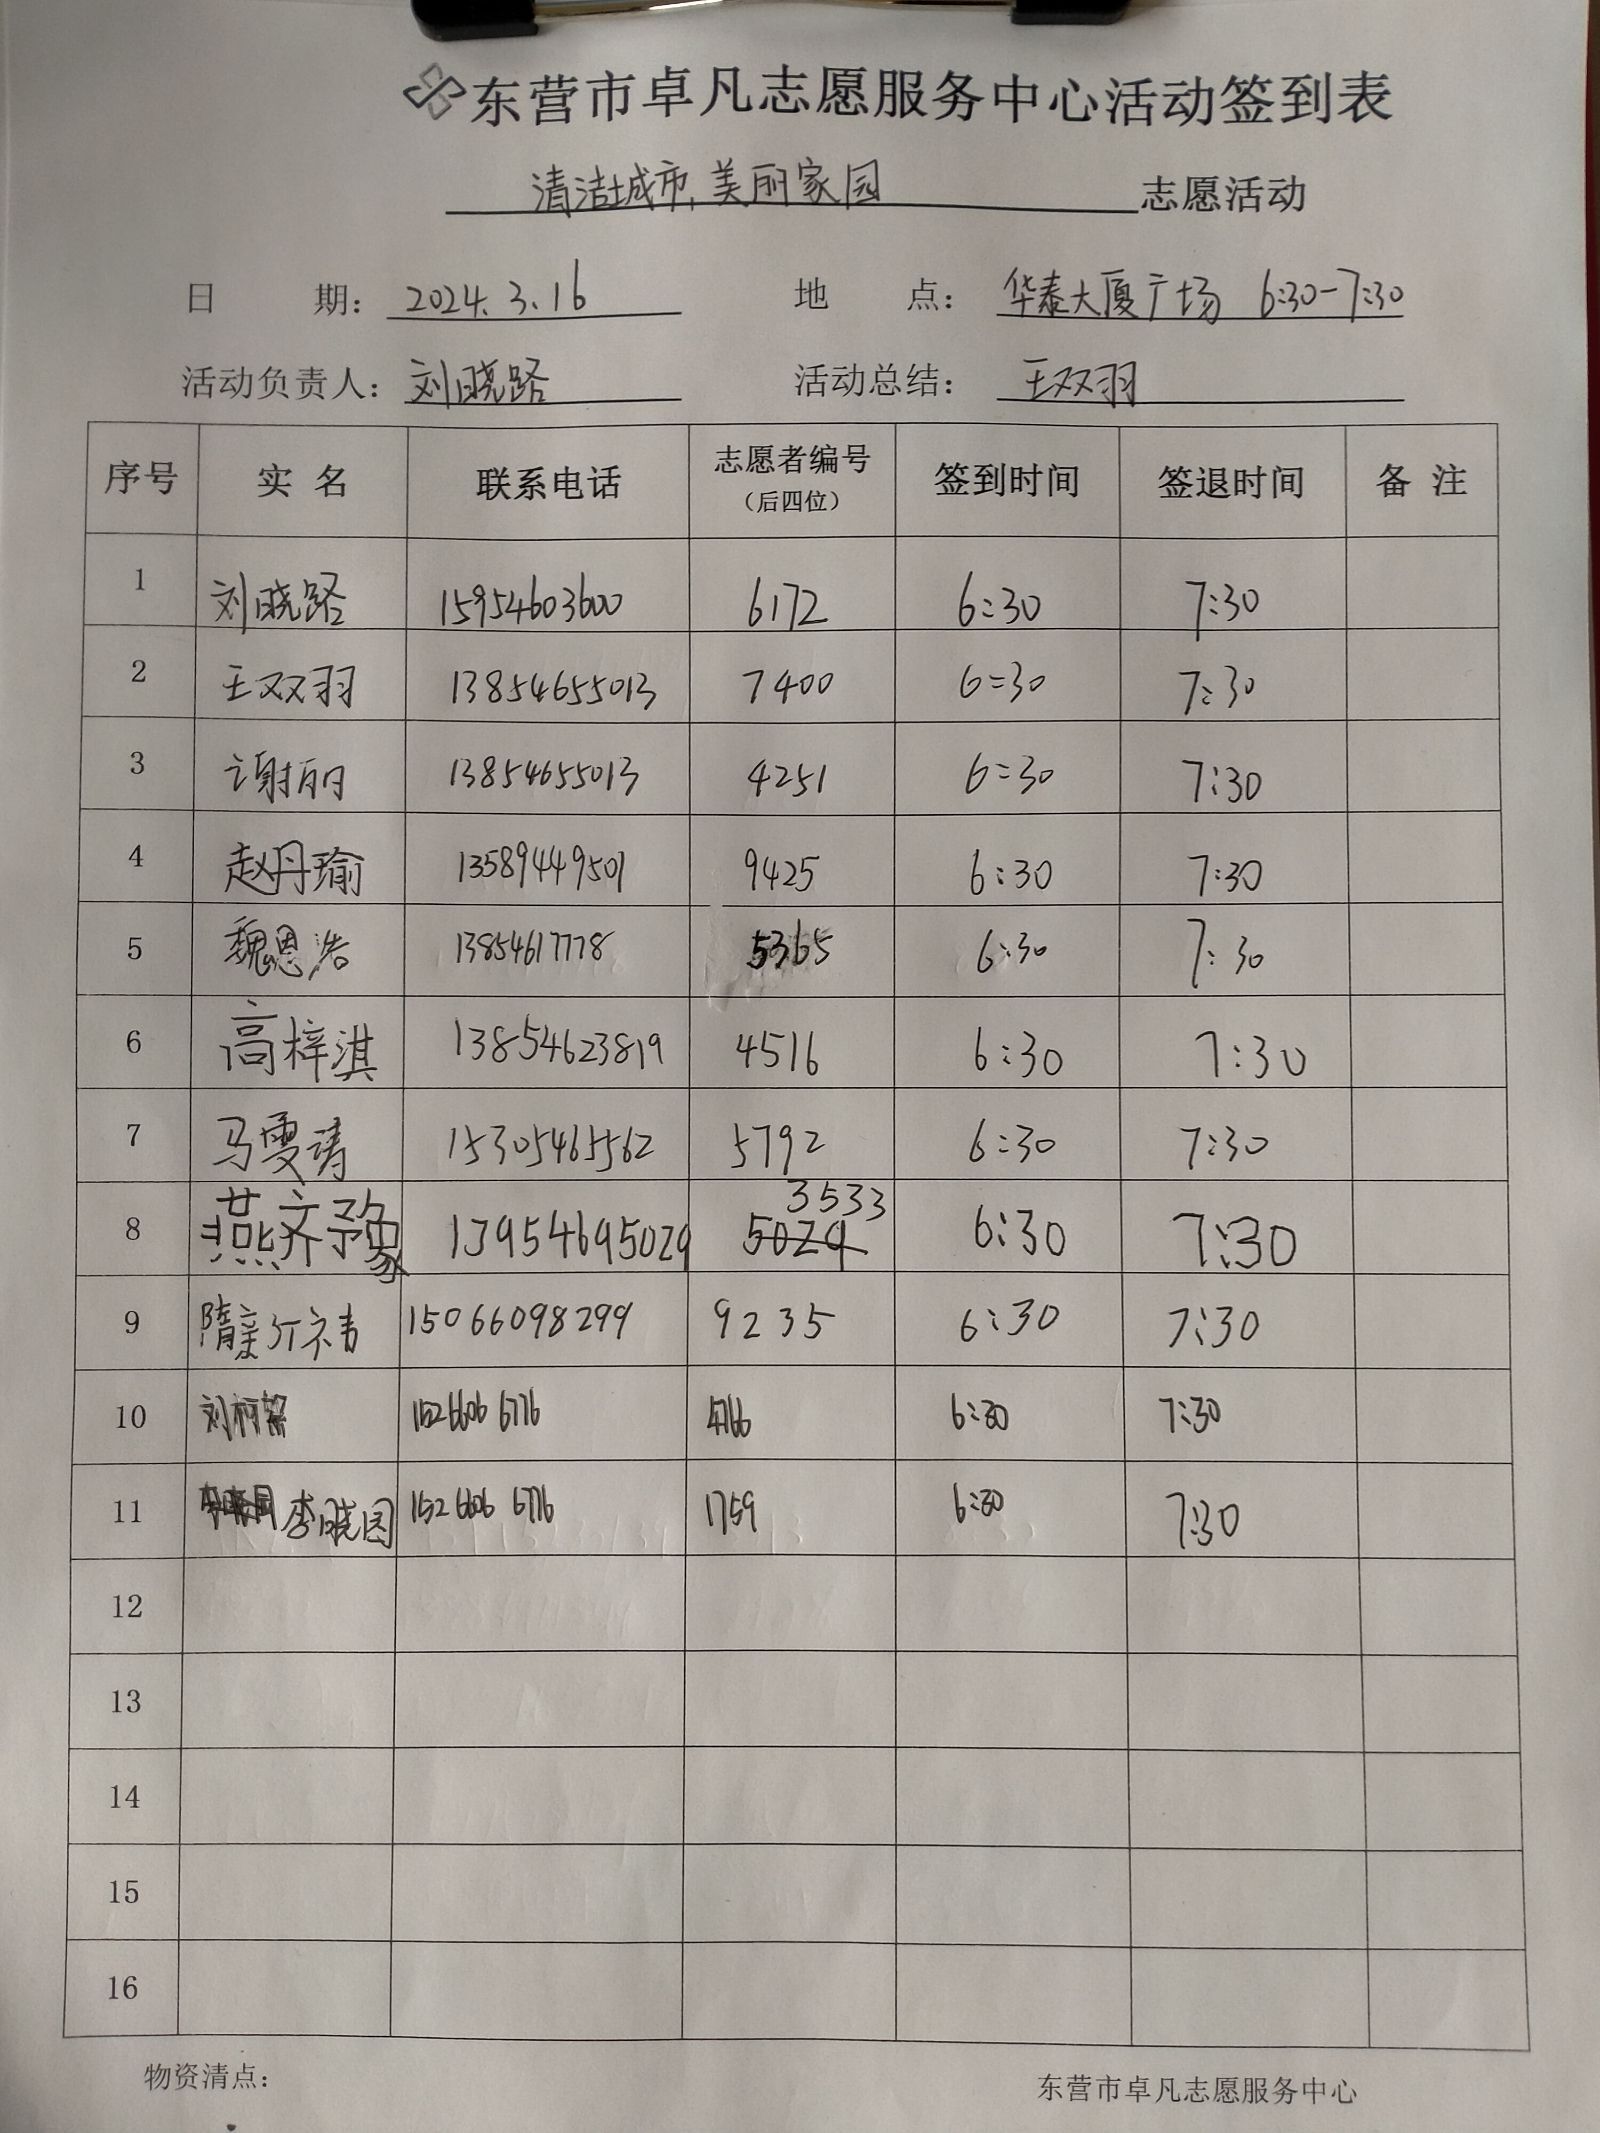 东营市卓凡志愿服务中心活动签到表
清洁城市,美丽家园 志愿活动
日 期: 2024.3.16 地 点: 华泰大厦广场 6:30-7:30
活动负责人: 刘晓路 活动总结: 王双羽
序号 实 名 联系电话 志愿者编号(后四位) 签到时间 签退时间 备 注
1 刘晓路 15954603600 6172 6:30 7:30
2 王双羽 13854655013 7400 6:30 7:30
3 谢丽 13854655013 4251 6:30 7:30
4 赵丹瑜 13589449501 9425 6:30 7:30
5 魏恩浩 13854617778 5365 6:30 7:30
6 高梓淇 13854623819 4516 6:30 7:30
7 马雯涛 15305465562 5792 6:30 7:30
8 燕齐豫 13954695029 5029 3533 6:30 7:30
9 隋 15066098299 9235 6:30 7:30
10 刘 15266066776 4766 6:30 7:30
11 李晓园 15266066776 1759 6:30 7:30
12
13
14
15
16
物资清点: 东营市卓凡志愿服务中心